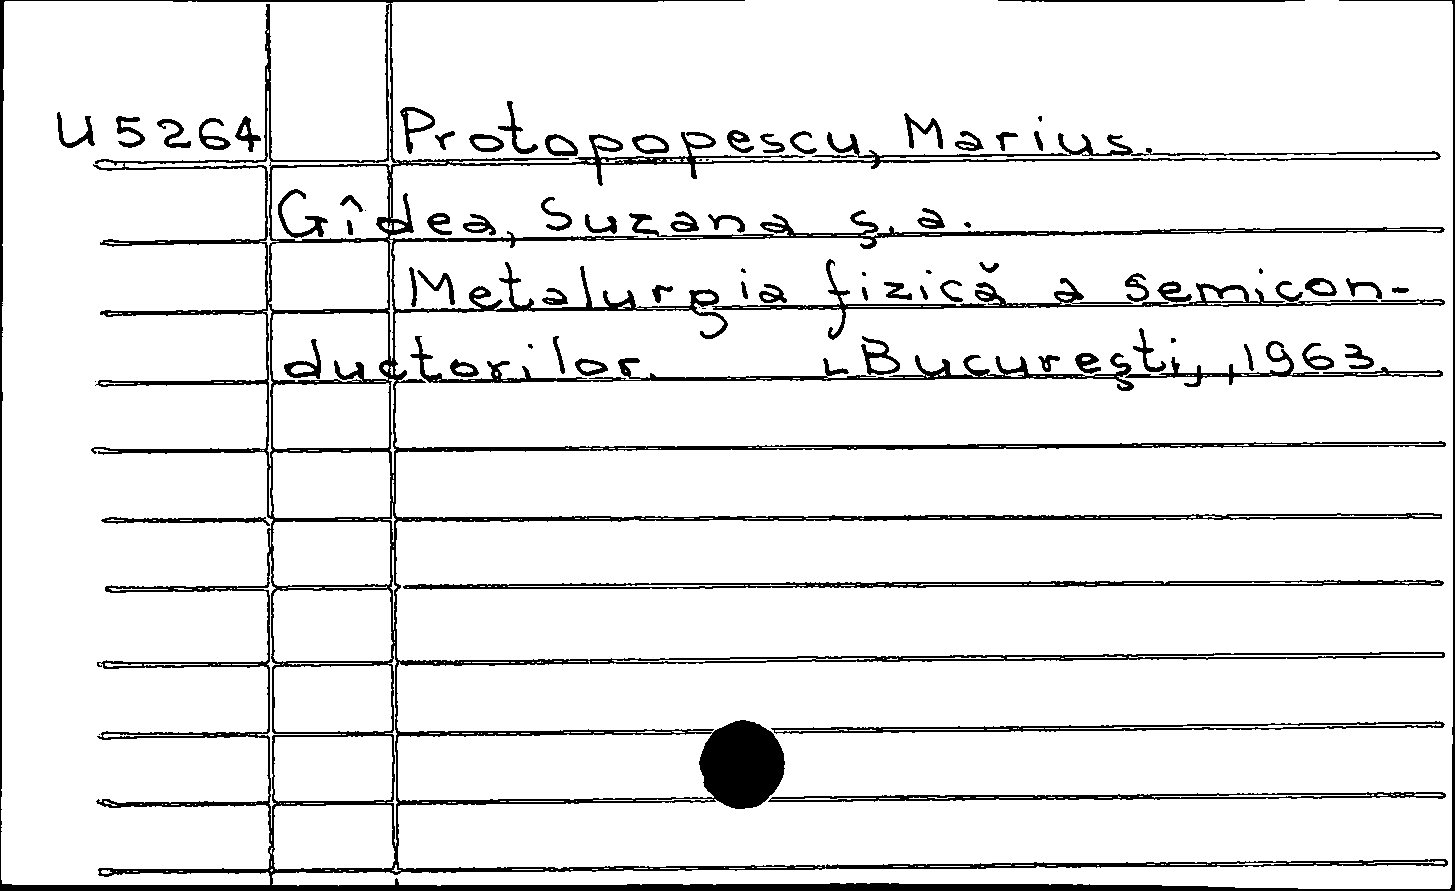 U 5264 Protopopescu, Marius.
Gîdea, Suzana ş.a.
Metalurgia fizică a semicon-
ductorilor. [Bucureşti], 1963.